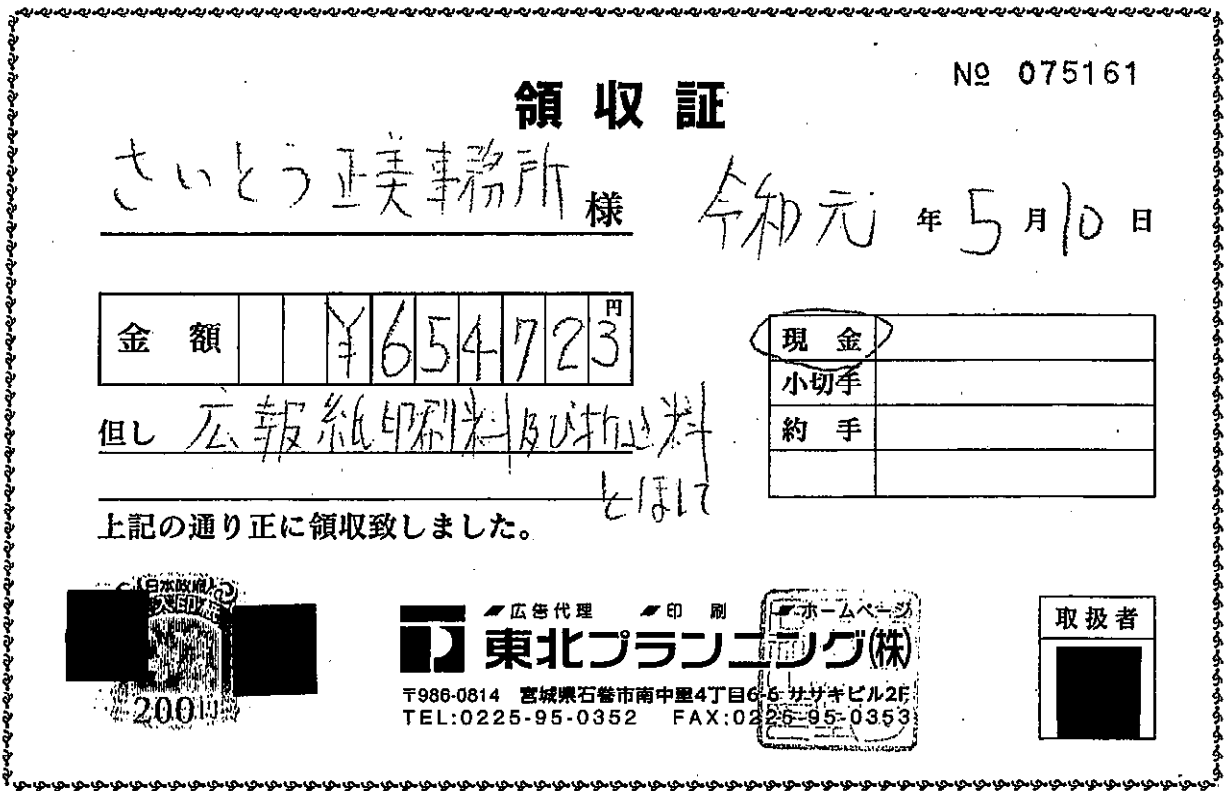 № 075161
領収証
さいとう正美事務所 様
令和元年5月10日
金額 ¥654723円
現金
小切手
約手
但し 広報紙印刷料及び折込料
として
上記の通り正に領収致しました。
日本政府
収入印紙
200円
広告代理 印刷 ホームページ
東北プランニング(株)
〒986-0814 宮城県石巻市南中里4丁目6-6 ササキビル2F
TEL:0225-95-0352 FAX:0225-95-0353
取扱者